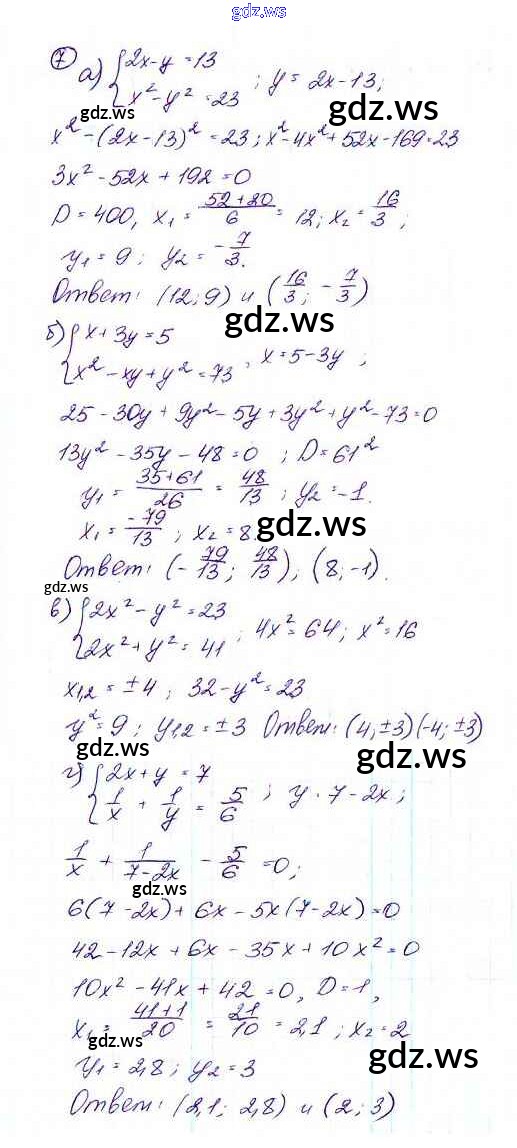 gdz.ws
7
а) { 2x - y = 13
x² - y² = 23 ; y = 2x - 13;
gdz.ws
gdz.ws
x² - (2x - 13)² = 23; x² - 4x² + 52x - 169 = 23
3x² - 52x + 192 = 0
D = 400, x₁ = (52+20)/6 = 12; x₂ = 16/3;
y₁ = 9; y₂ = -7/3.
Ответ: (12; 9) и (16/3; -7/3)
gdz.ws
б) { x + 3y = 5
x² - xy + y² = 73 , x = 5 - 3y ;
gdz.ws
25 - 30y + 9y² - 5y + 3y² + y² - 73 = 0
13y² - 35y - 48 = 0 ; D = 61²
y₁ = (35+61)/26 = 48/13 ; y₂ = -1.
x₁ = -79/13 ; x₂ = 8
gdz.ws
Ответ: (-79/13; 48/13); (8; -1).
gdz.ws
в) { 2x² - y² = 23
2x² + y² = 41 ; 4x² = 64; x² = 16
x₁,₂ = ±4 ; 32 - y² = 23
y² = 9 ; y₁,₂ = ±3 Ответ: (4; ±3) (-4; ±3)
gdz.ws
gdz.ws
г) { 2x + y = 7
1/x + 1/y = 5/6 ; y · 7 - 2x;
gdz.ws
1/x + 1/(7-2x) - 5/6 = 0;
gdz.ws
6(7 - 2x) + 6x - 5x(7 - 2x) = 0
42 - 12x + 6x - 35x + 10x² = 0
10x² - 41x + 42 = 0, D = 1,
x₁ = (41+1)/20 = 21/10 = 2,1 ; x₂ = 2
gdz.ws
gdz.ws
y₁ = 2,8 ; y₂ = 3
Ответ: (2,1; 2,8) и (2; 3)
gdz.ws